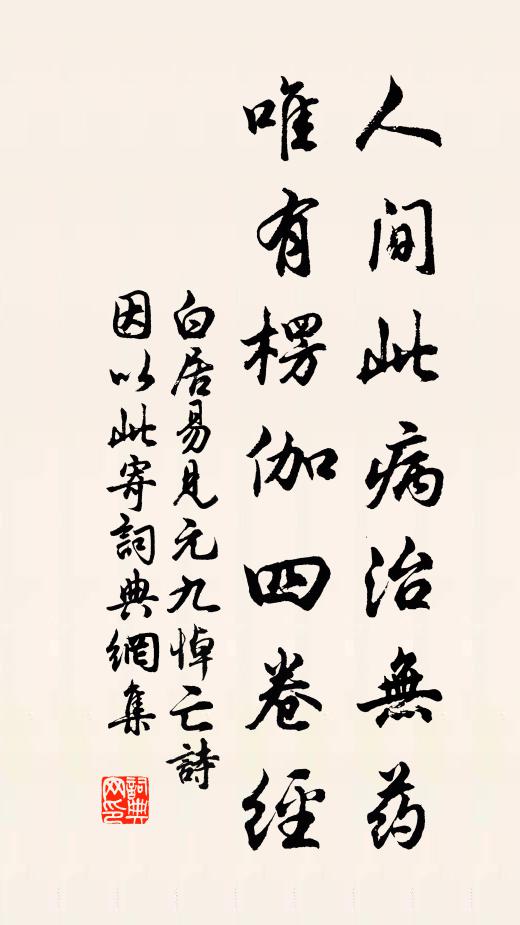 人間此病治無药
唯有楞伽四卷經
白居易見元九悼亡詩
因以此寄詞典網集
詞典網印